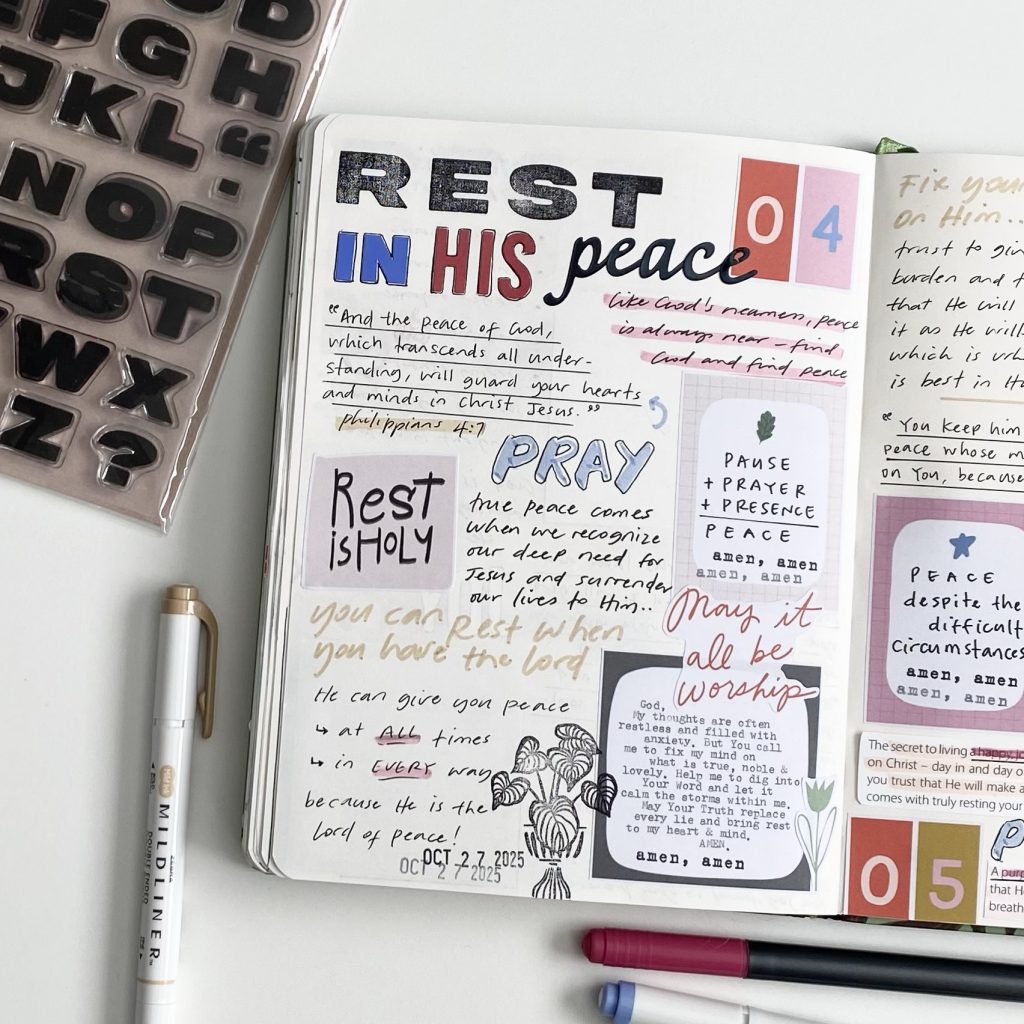 D
F G H
J K L “
N O P .
R S T
W X
Z ?
REST
IN HIS peace
04
like God's nearness, peace
is always near – find
God and find peace
"And the peace of God,
which transcends all under-
standing, will guard your hearts
and minds in Christ Jesus."
philippians 4:7
PRAY
Rest
is HOLY
true peace comes
when we recognize
our deep need for
Jesus and surrender
our lives to Him..
PAUSE
+ PRAYER
+ PRESENCE
PEACE
amen, amen
amen, amen
you can Rest when
you have the lord
He can give you peace
↳ at ALL times
↳ in EVERY way
because He is the
lord of peace!
OCT 27 2025
OCT 27 2025
May it
all be
worship
God,
My thoughts are often
restless and filled with
anxiety. But You call
me to fix my mind on
what is true, noble &
lovely. Help me to dig into
Your Word and let it
calm the storms within me.
May Your Truth replace
every lie and bring rest
to my heart & mind.
AMEN.
amen, amen
Fix your
on Him..
trust to
burden and
that He will
it as He
which is
is best in
"You keep him
peace whose
on You, because
PEACE
despite the
difficult
circumstances
amen, amen
amen, amen
The secret to living a happy
on Christ – day in and day o
you trust that He will make a
comes with truly resting your
05
P
A
that He
breath
ZEBRA
MILDLINER™
DOUBLE ENDED